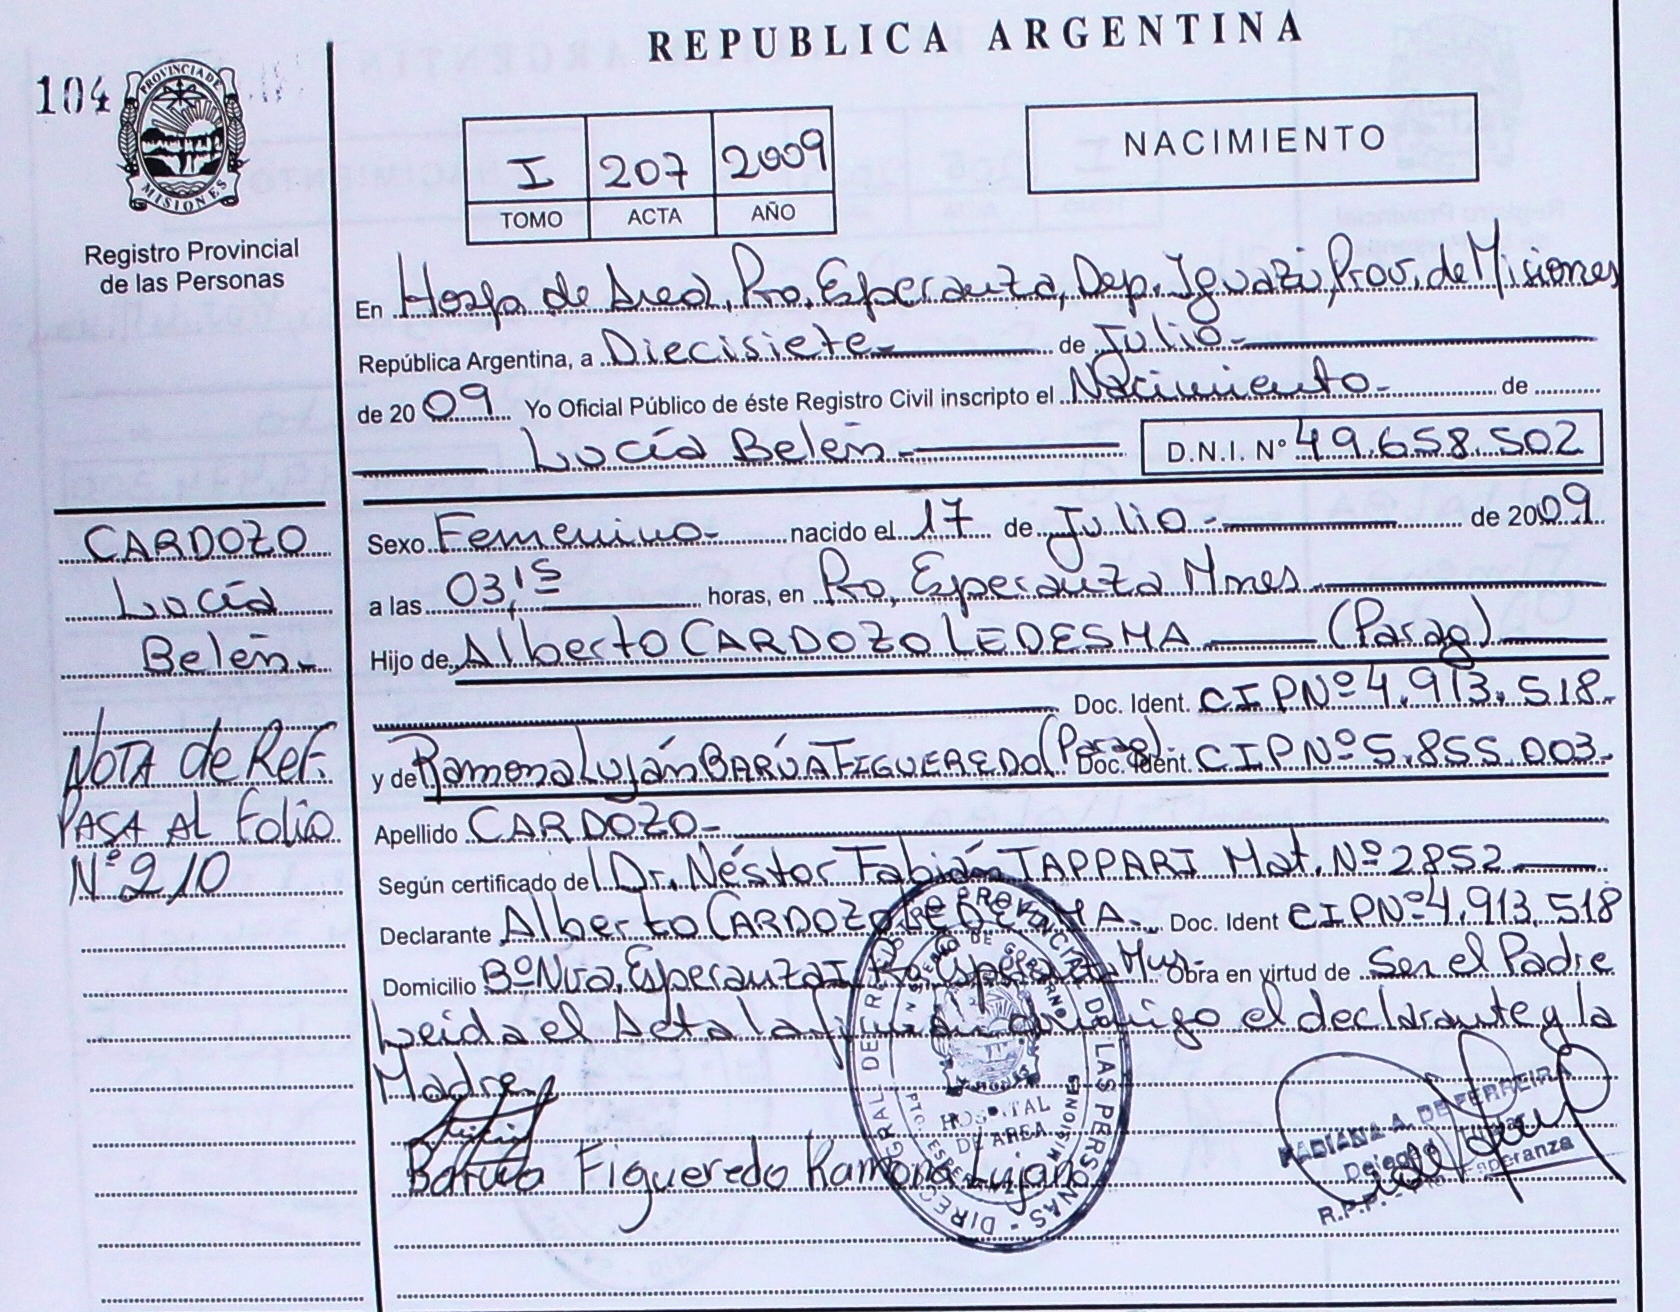 REPUBLICA ARGENTINA
104
PROVINCIA DE
MISIONES
Registro Provincial
de las Personas
I 207 2009
TOMO ACTA AÑO
NACIMIENTO
En Hosp. de Area, Pto. Esperanza, Dep. Iguazú, Prov. de Misiones
República Argentina, a Diecisiete.- de Julio.-
de 2009 Yo Oficial Público de éste Registro Civil inscripto el Nacimiento.- de
Lucía Belén.- D.N.I. Nº 49.658.502
CARDOZO
Lucía
Belén.-
NOTA de Ref.
PASA AL Folio
Nº 210
Sexo Femenino.- nacido el 17 de Julio.- de 2009
a las 03,15 horas, en Pto. Esperanza Mnes.
Hijo de Alberto CARDOZO LEDESMA (Parag)
Doc. Ident. C.I.P Nº 4.913.518.-
y de Ramona Luján BARÚA FIGUEREDO (Parag) Doc. Ident. C.I.P Nº 5.855.003.-
Apellido CARDOZO.-
Según certificado del Dr. Néstor Fabián TAPPARI Mat. Nº 2852
Declarante Alberto CARDOZO LEDESMA.- Doc. Ident C.I.P Nº 4.913.518
Domicilio Bº Nva. Esperanza I, Pto. Esperanza Mns. Obra en virtud de Ser el Padre
Leida el Acta la firman conmigo el declarante y la
Madre
Barua Figueredo Ramona Lujan
HOSPITAL
DE AREA
FABIANA A. DE FERREIRA
R.P.P. Esperanza